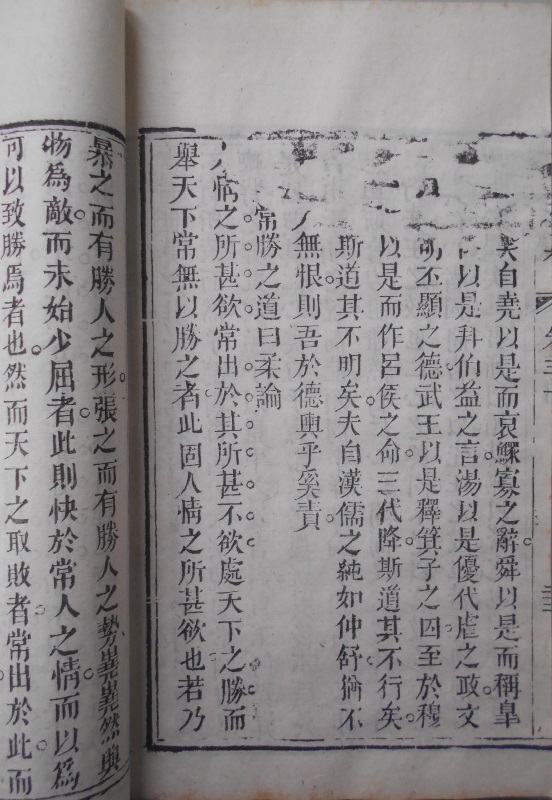 矣自堯以是而哀鰥寡之辭舜以是而稱皐
以是拜伯益之言湯以是優代虐之政文
丕顯之德武王以是釋箕子之囚至於穆
以是而作呂侯之命三代降斯道其不行矣
斯道其不明矣夫自漢儒之純如仲舒猶不
無恨則吾於德輿乎奚責
常勝之道曰柔論
人情之所甚欲常出於其所甚不欲處天下之勝而
舉天下常無以勝之者此固人情之所甚欲也若乃
暴之而有勝人之形張之而有勝人之勢嶤嶤然與
物為敵而未始少屈者此則快於常人之情而以為
可以致勝焉者也然而天下之取敗者常出於此而